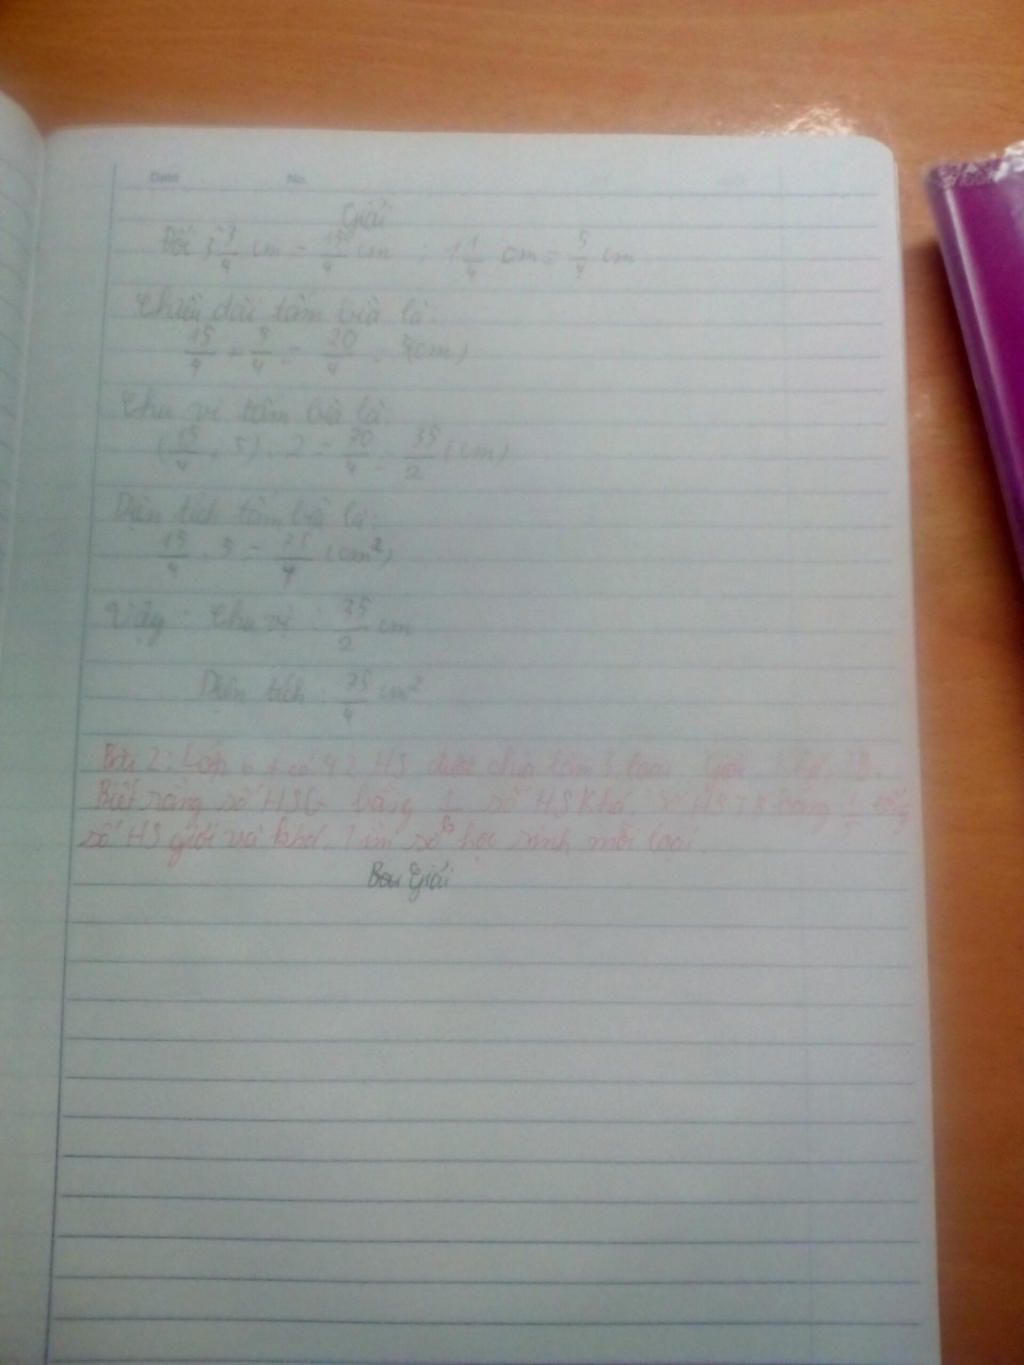 Date No.
Giải
Đổi 3 3/4 cm = 15/4 cm ; 1 1/4 cm = 5/4 cm
Chiều dài tấm bìa là:
15/4 + 5/4 = 20/4 = 5(cm)
Chu vi tấm bìa là:
(15/4 + 5) . 2 = 70/4 = 35/2 (cm)
Diện tích tấm bìa là:
15/4 . 5 = 75/4 (cm²)
Vậy: Chu vi: 35/2 cm
Diện tích: 75/4 cm²
Bài 2: Lớp 6A có 42 HS được chia làm 3 loại Giỏi, Khá, TB.
Biết rằng số HSG bằng 1/6 số HS Khá, số HSTB bằng 1/5 tổng
số HS giỏi và khá. Tìm số học sinh mỗi loại.
Bài Giải